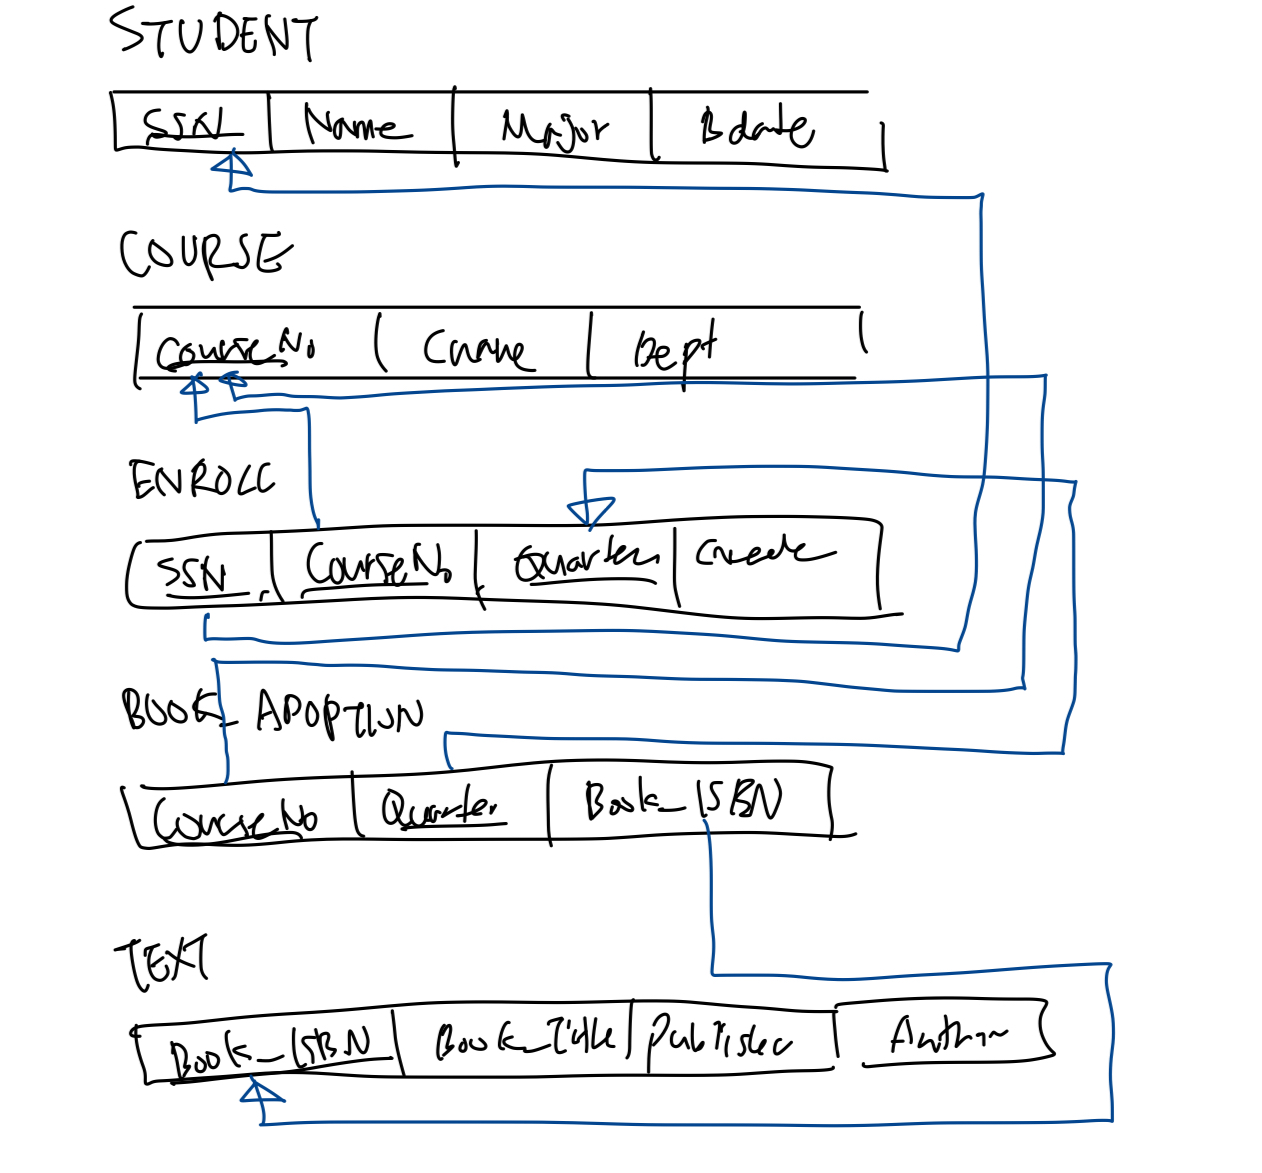 STUDENT
SSN Name Major Bdate
COURSE
CourseNo Cname Dept
ENROLL
SSN CourseNo Quarter Grade
BOOK_ADOPTION
CourseNo Quarter Book_ISBN
TEXT
Book_ISBN Book_Title Publisher Author